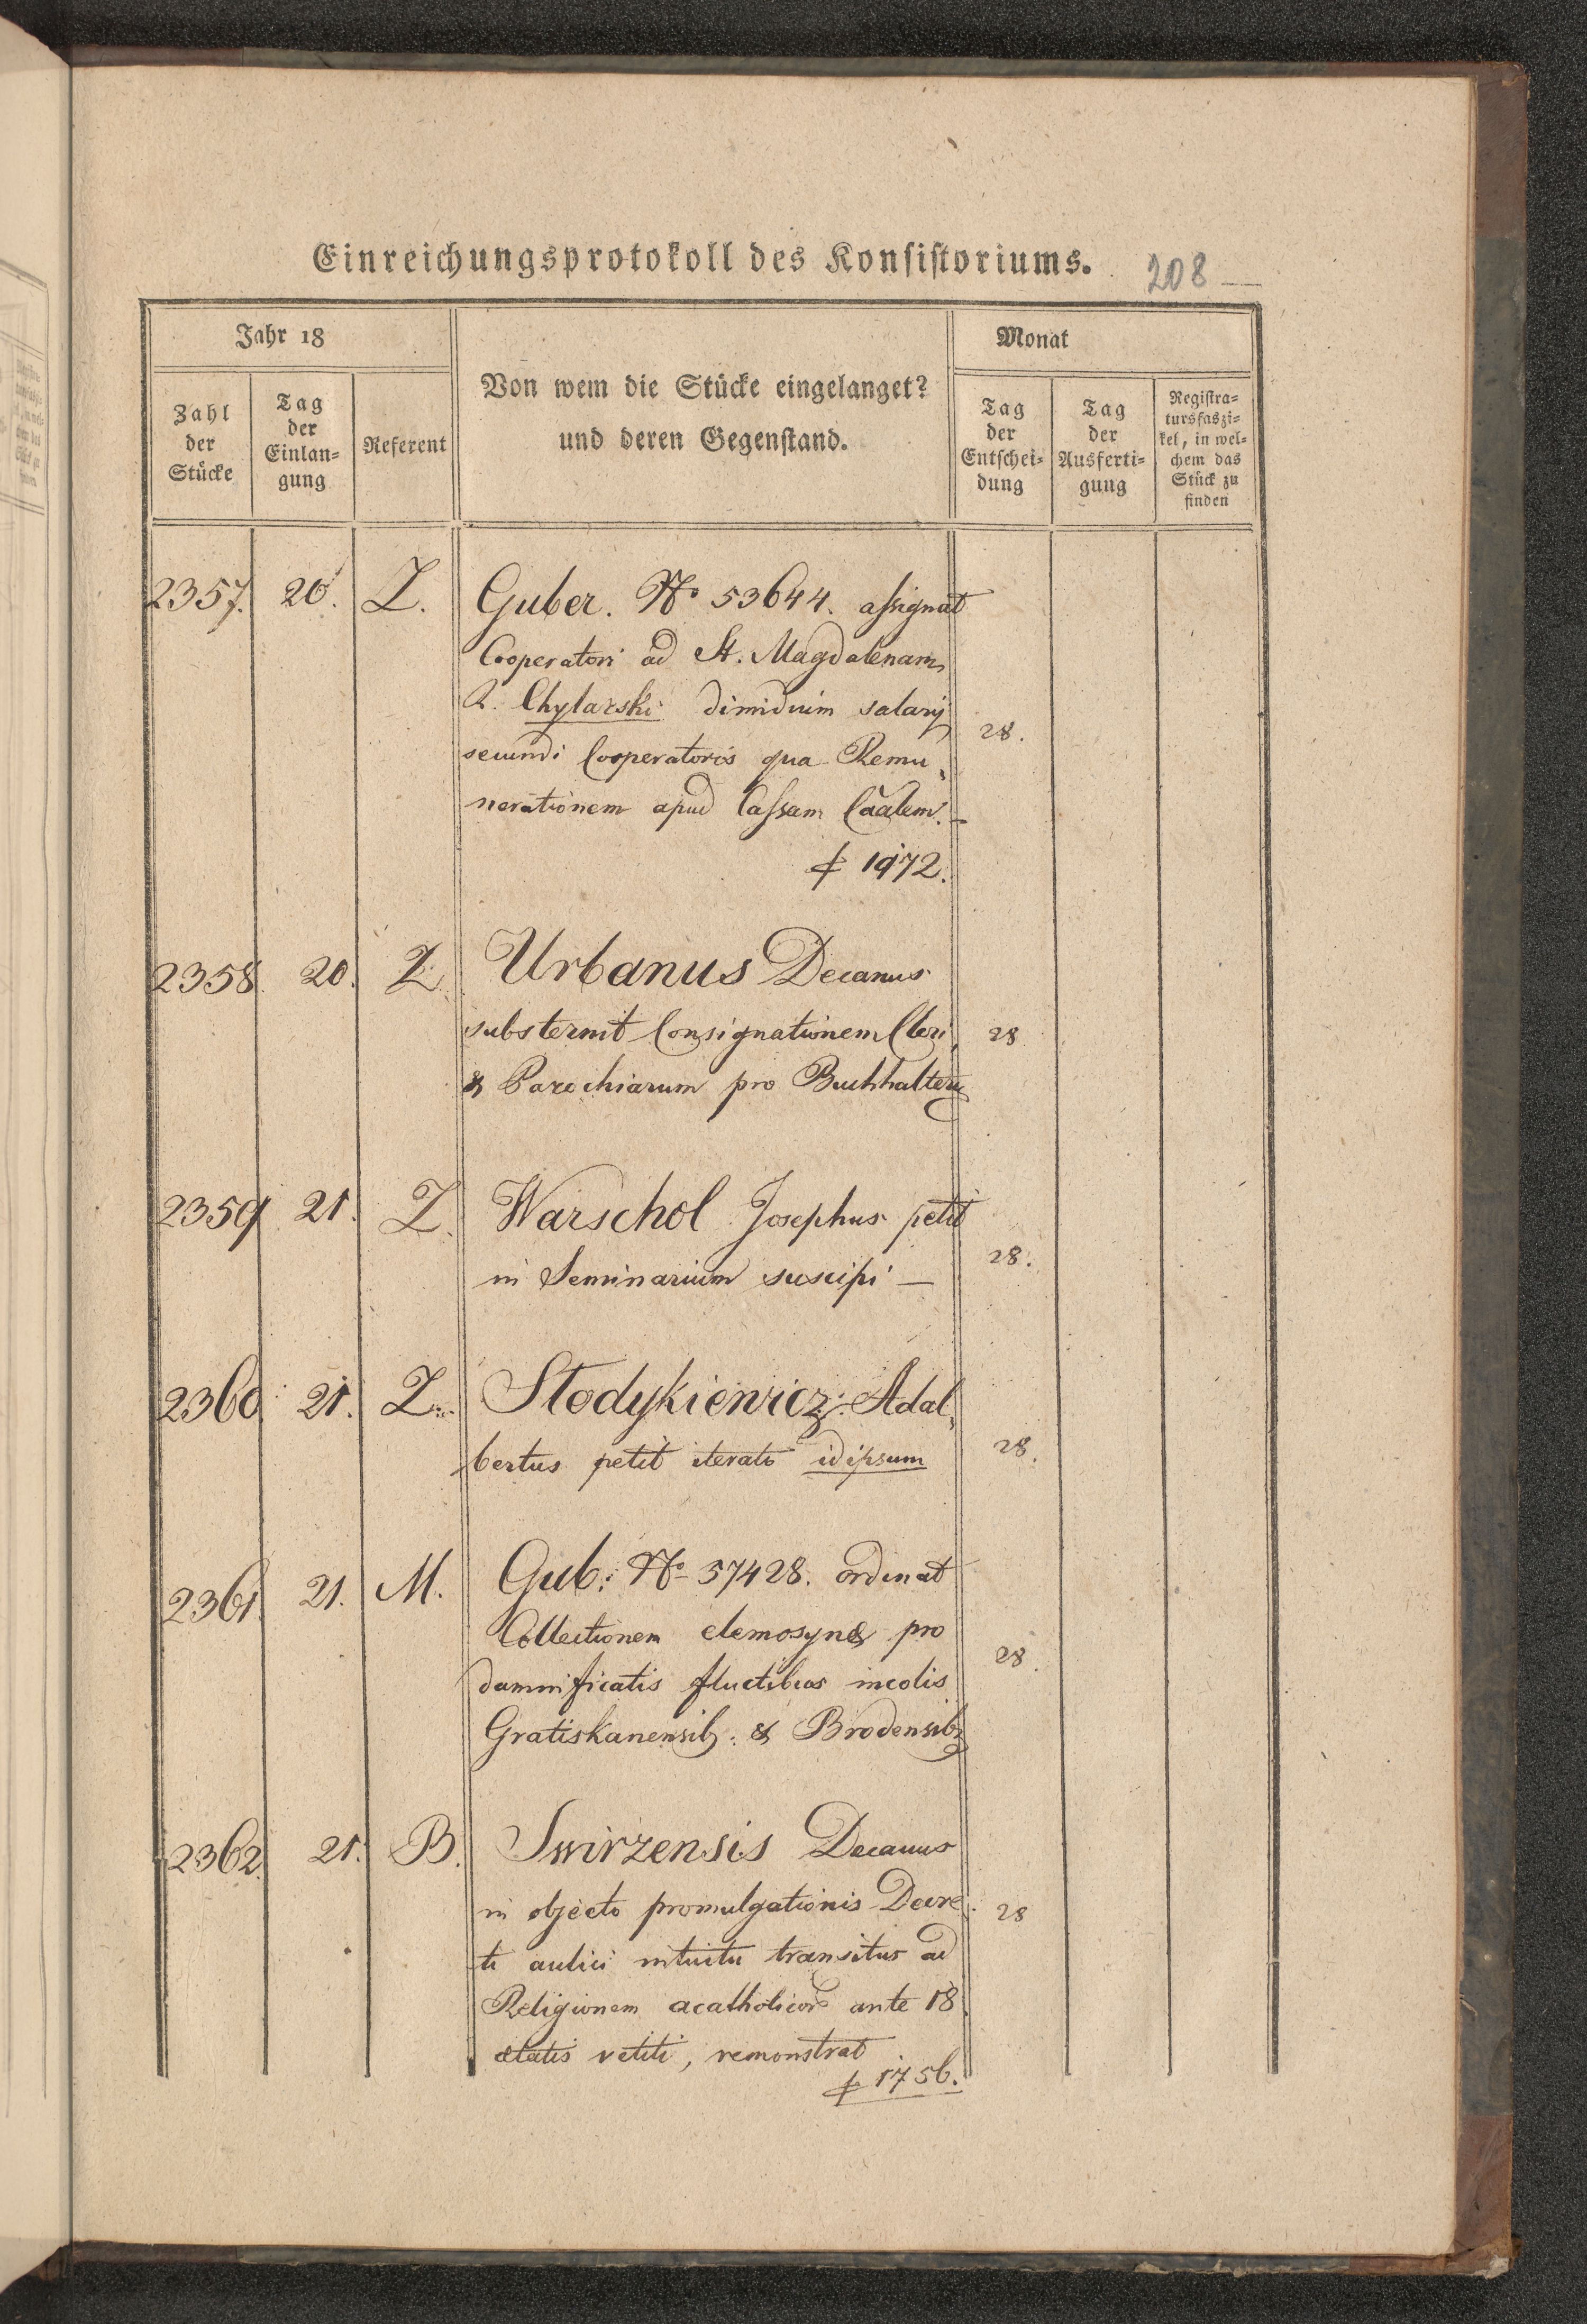 Einreichungsprotokoll des Konsistoriums. 208
Jahr 18
Monat
Zahl der Stücke
Tag der Einlan-gung
Referent
Von wem die Stücke eingelanget?
und deren Gegenstand.
Tag der Entschei-dung
Tag der Ausferti-gung
Registra-tursfaszi-kel, in wel-chem das Stück zu finden
2357. 20. Z. Guber. No 53644. assignat
Cooperatori ad St. Magdalenam
R. Chylarski dimidium salarij
28.
secundi Cooperatoris qua Remu,
nerationem apud Cassam Cāalem.
1972.
2358 20. Z. Urbanus Decanus
substernit Consignationem Cleri, 28
& Parochiarum pro Buchhaltery
2359 21. Z. Warschol Josephus petit
in Seminarium suscipi — 28.
2360 21. Z. Stodykiewicz Adal,
bertus petit iterato idipsum 28.
2361. 21. M. Gub: No 57428. ordinat
Collectionem elemosynæ pro
28.
damnificatis fluctibus incolis
Gratiskanensib: & Brodensib
2362 21. B. Swirzensis Decanus
in objecto promulgationis Decre 28
ti aulici intuitu transitus ad
Religionem acatholicor ante 18
ætatis vetiti, remonstrat
1756.